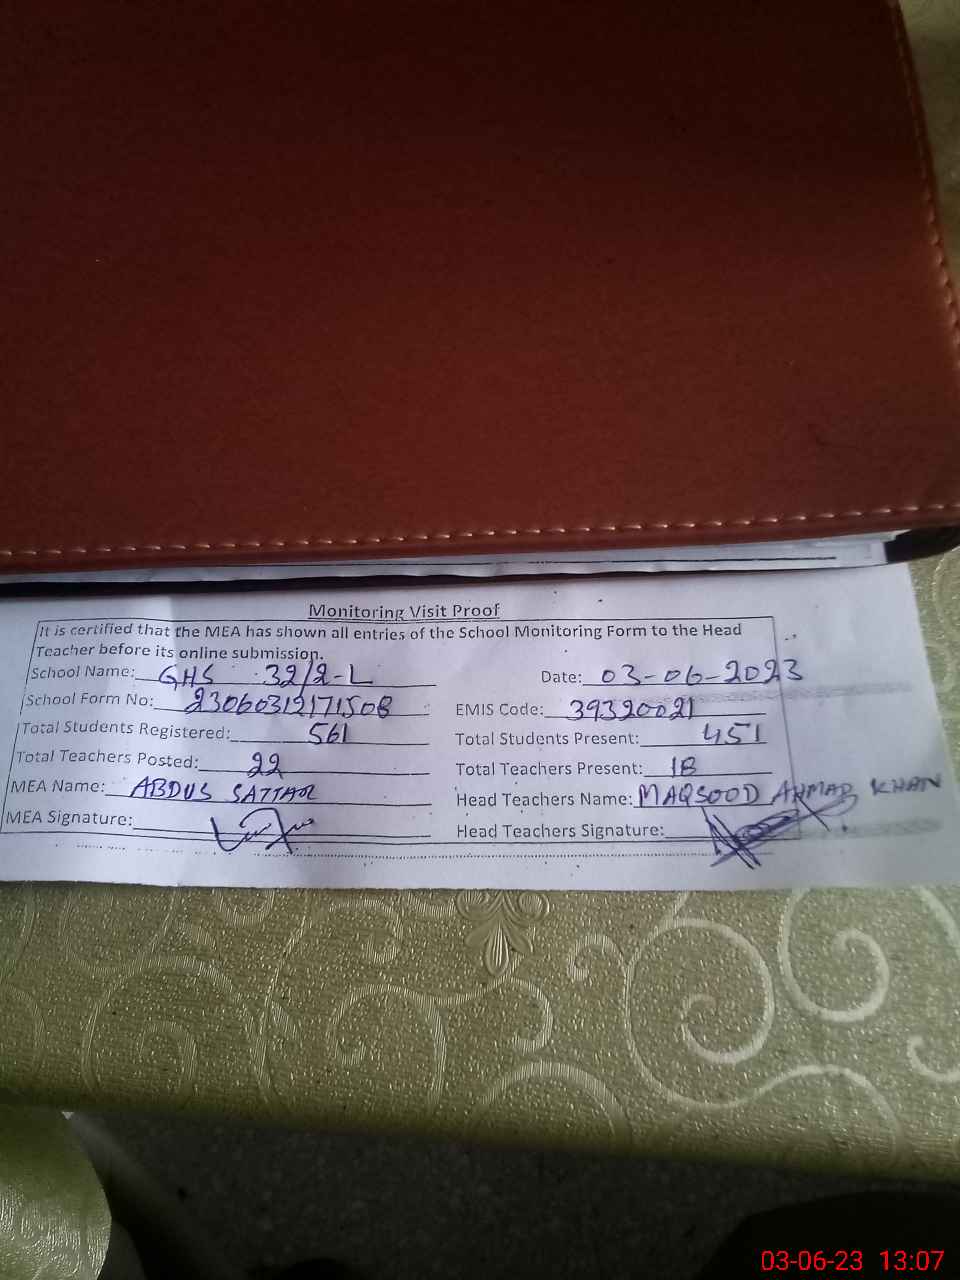 Monitoring Visit Proof
It is certified that the MEA has shown all entries of the School Monitoring Form to the Head
Teacher before its online submission.
School Name: GHS 32/2-L Date: 03-06-2023
School Form No: 23060312171508 EMIS Code: 39320021
Total Students Registered: 561 Total Students Present: 451
Total Teachers Posted: 22 Total Teachers Present: 18
MEA Name: ABDUS SATTAR Head Teachers Name: MAQSOOD AHMAD KHAN
MEA Signature: Head Teachers Signature:
03-06-23 13:07